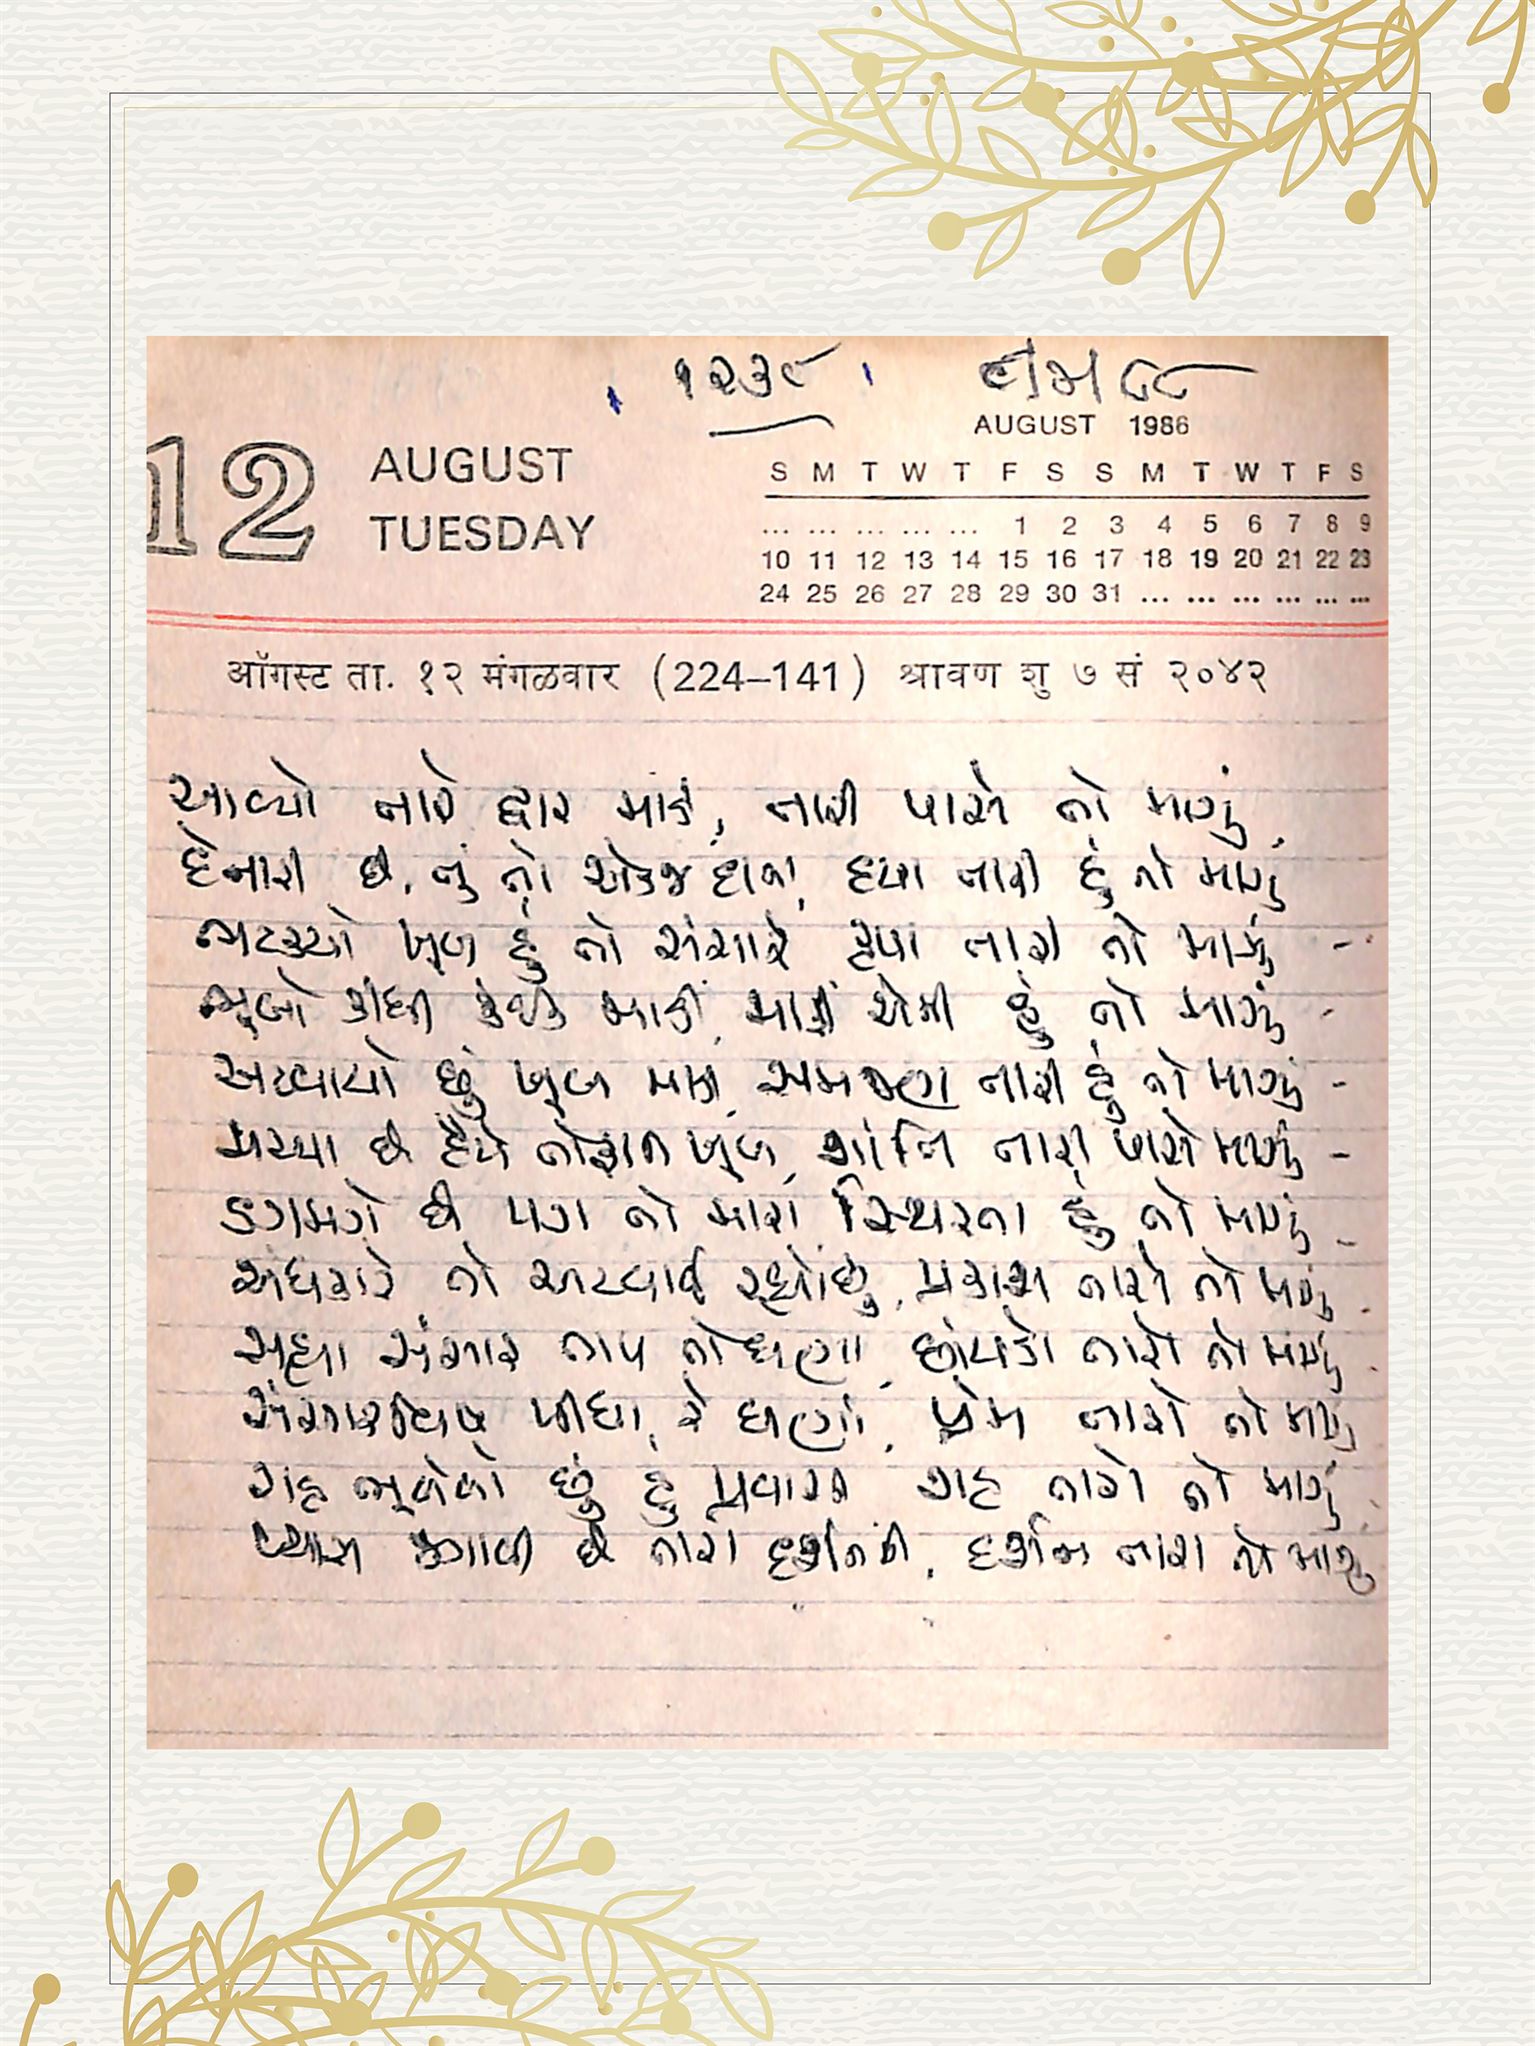 ૧૨૩૯
12 AUGUST TUESDAY
AUGUST 1986
S M T W T F S S M T W T F S
... ... ... ... ... 1 2 3 4 5 6 7 8 9
10 11 12 13 14 15 16 17 18 19 20 21 22 23
24 25 26 27 28 29 30 31 ... ... ... ... ... ...
ऑगस्ट ता. १२ मंगळवार (224–141) श्रावण शु ७ सं २०४२
આવ્યો તારે દ્વાર માડી, તારી પાસે તો માગું
દેનારી છે, તું તો એકજ દાતા, દયા તારી હું તો માગું
ભટક્યો ખૂબ હું તો સંસારે કૃપા તારી તો માગું -
ભૂલો કીધી કંઈક માડી, માફી એની હું તો માગું -
અટવાયો છું ખૂબ માડી, સમજણ તારી હું તો માગું -
મચ્યા છે હૈયે તોફાન ખૂબ, શાંતિ તારી પાસે માગું -
ડગમગે છે પગ તો મારા, સ્થિરતા હું તો માગું -
અંધકારે તો અટવાઈ રહ્યો છું, પ્રકાશ તારો તો માગું -
સહ્યા સંસાર તાપ તો ઘણા, છાંયડો તારો તો માગું -
સંસારવિષ પીધા રે ઘણાં, પ્રેમ તારો તો માગું
રાહ ભૂલેલો છું હું પ્રવાસી રાહ તારો તો માગું
પ્યાસ જગાવી છે તારા દર્શનની, દર્શન તારા તો માગું